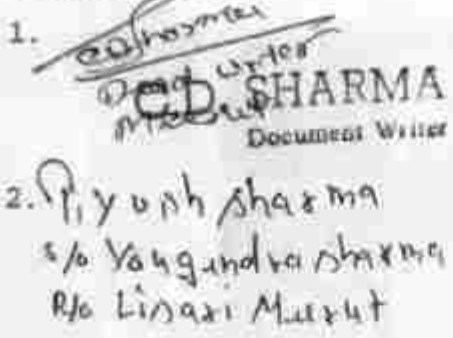 1. CDSharma
Deed Writer
Meerut
C.D. SHARMA
Document Writer
2. Piyush Sharma
S/o Yougundra Sharma
R/o Lisari Meerut